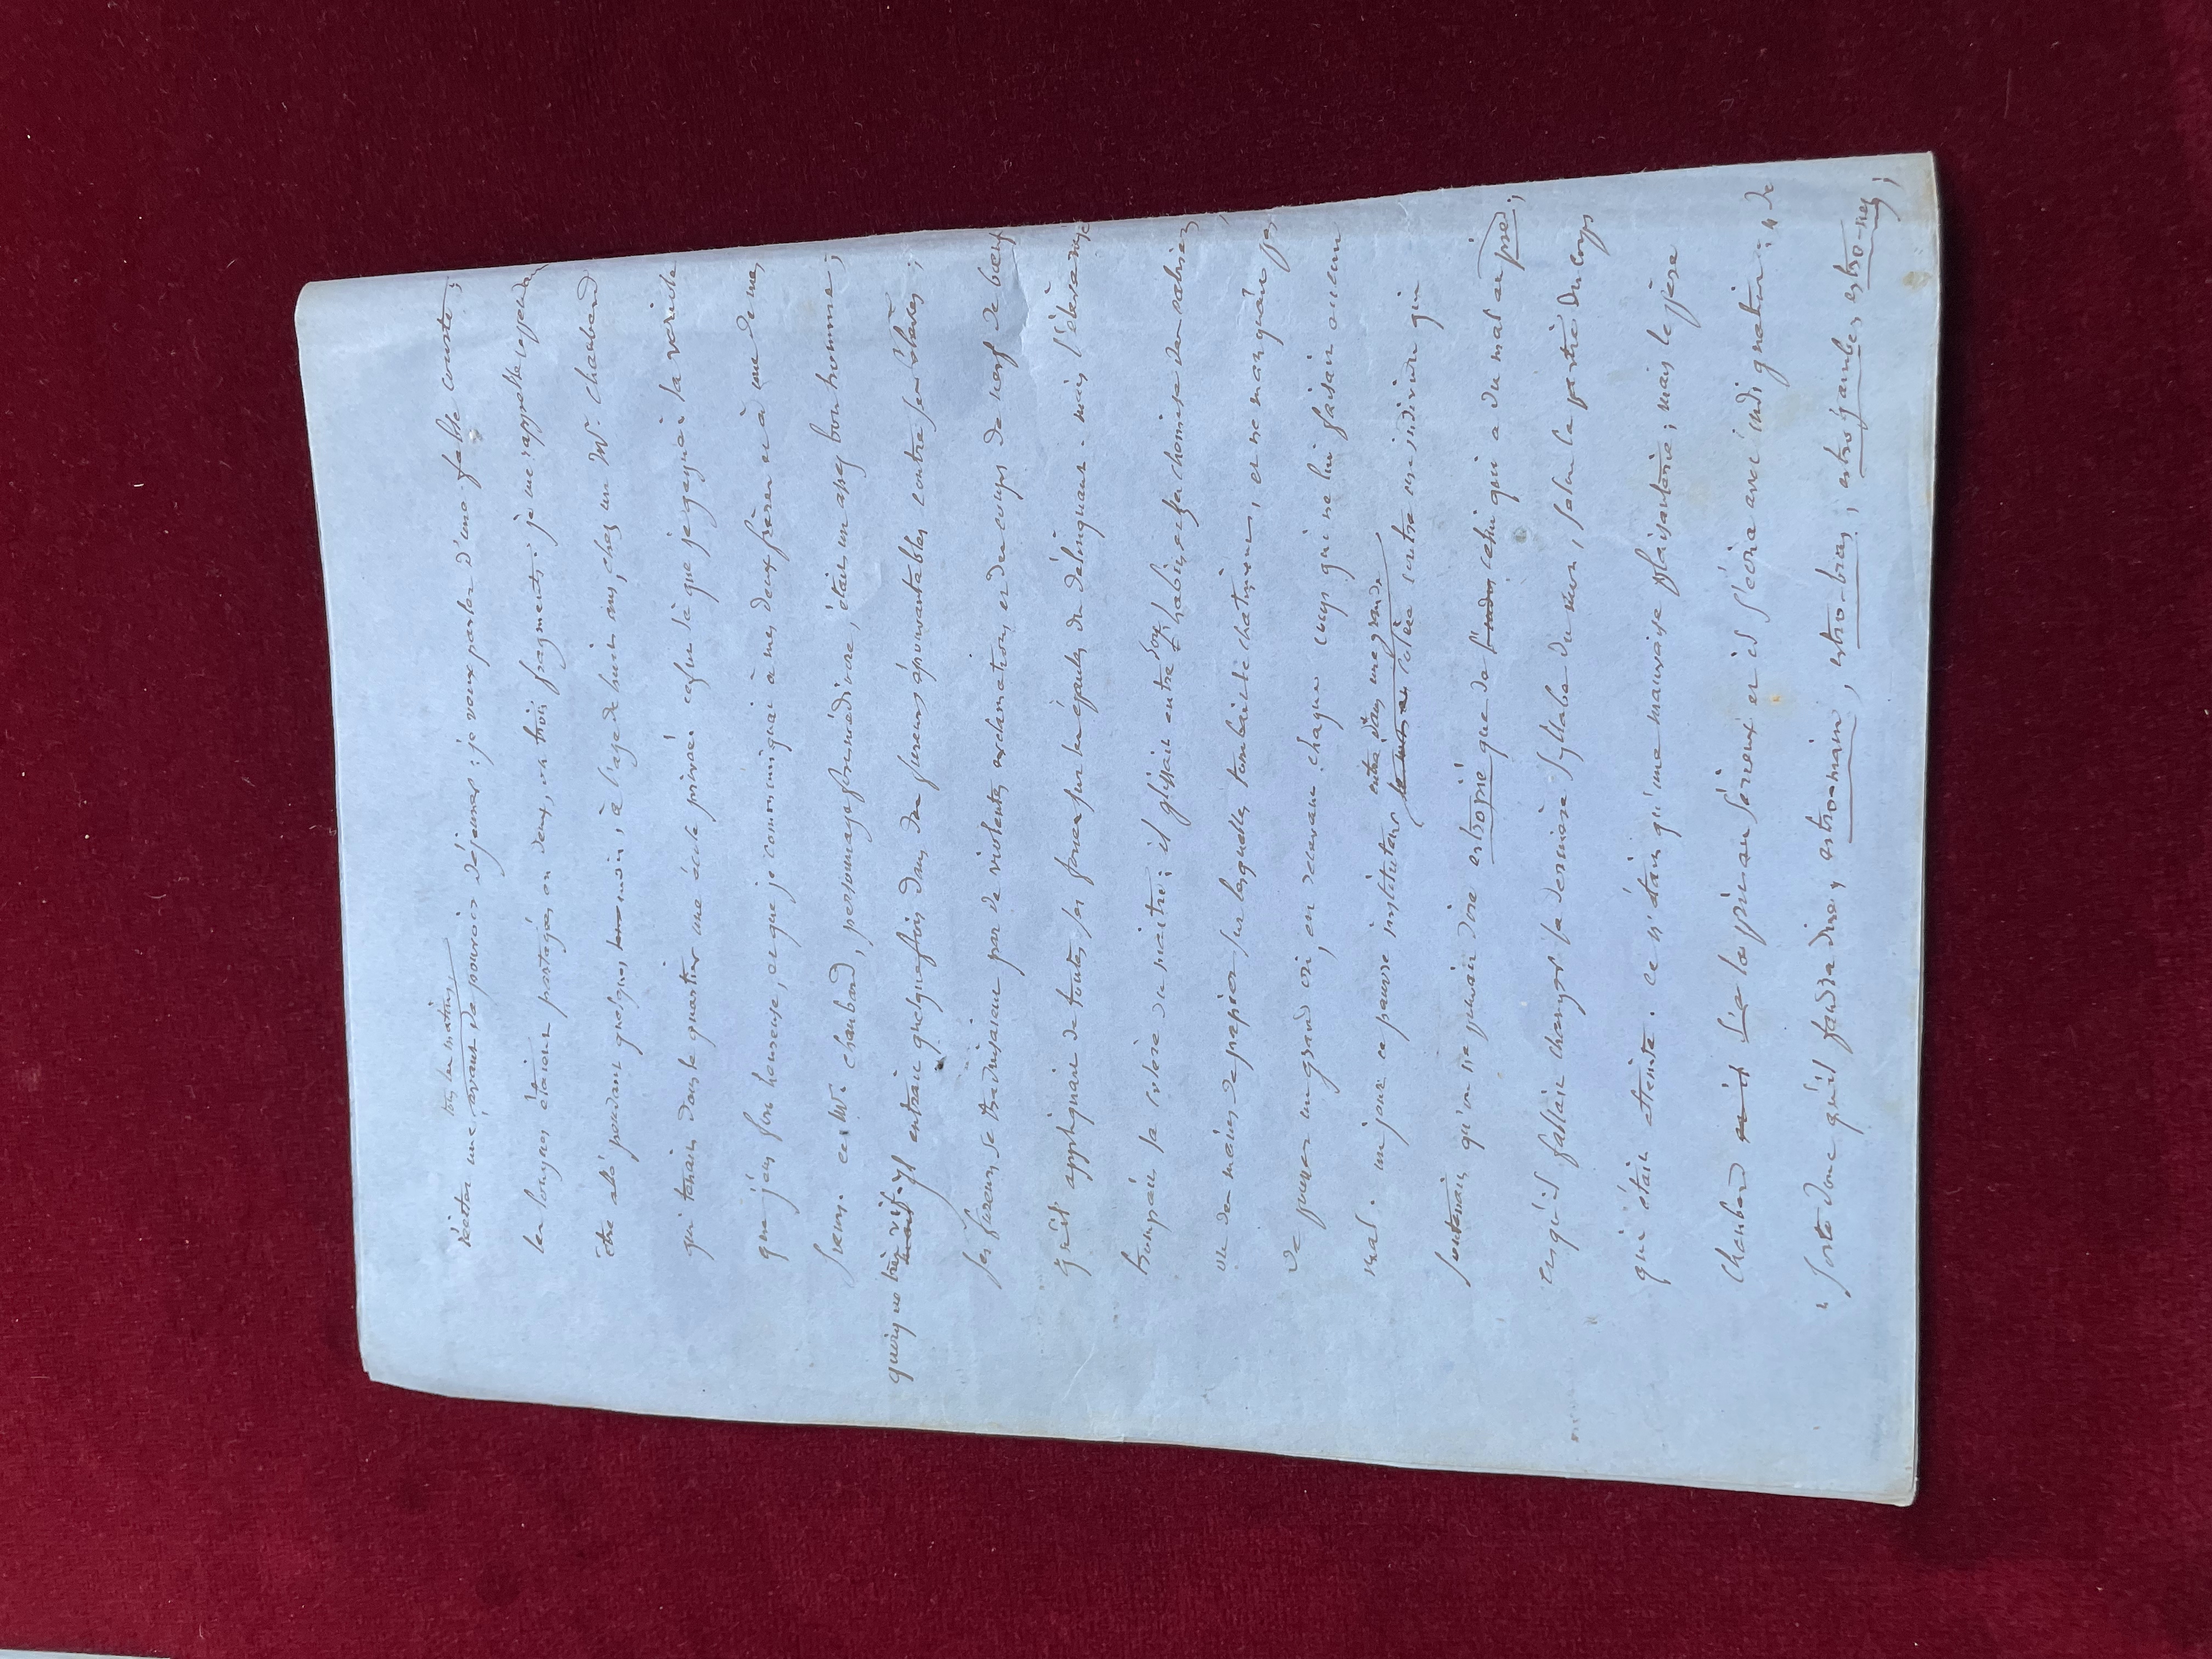 tous les matins
réciter une, avant de pouvoir déjeuner : je veux parler d'une fable courte ;
les longues étaient partagées en deux, ou trois fragments. je me rappelle cependant
être allé pendant quelques mois, à l'age de huit ans, chez un Mr. Chaubard
qui tenait dans le quartier une école privée. ce fut là que je gagnai la
que j'eus fort heureuse, et que je communiquai à mes deux frères et à une de mes
sœurs. ce Mr. Chaubard, personnage forcené dirai, était un assez bon homme ;
quoique très vif. il entrait quelquefois dans des fureurs épouvantables contre ses élèves ;
ses fureurs se traduisaient par de violentes exclamations et des coups de nerf de bœuf
qu'il appliquait de toutes ses forces sur les épaules du délinquant. mais l'élève
trompait la colère du maître : il glissait entre son habit et sa chemise des cahiers
ou des mains de papier sur lesquelles tombait le chatiment, et ne manquait pas
de pousser un grand cri, en recevant chaque coup qui ne lui faisait aucun
mal. un jour ce pauvre instituteur entra dans une grande
colère contre un individu qui
soutenait qu'on ne pouvait dire estropié que de celui qui a du mal au pied ;
et qu'il fallait changer la dernière syllabe du mot, selon la partie du corps
qui était atteinte. ce n'était qu'une mauvaise plaisanterie ; mais le père
Chaubard la prit au sérieux et il s'écria avec indignation : « de
« sorte donc qu'il faudra dire, estromain, estro-bras ; estrojambes, estro-nez ;